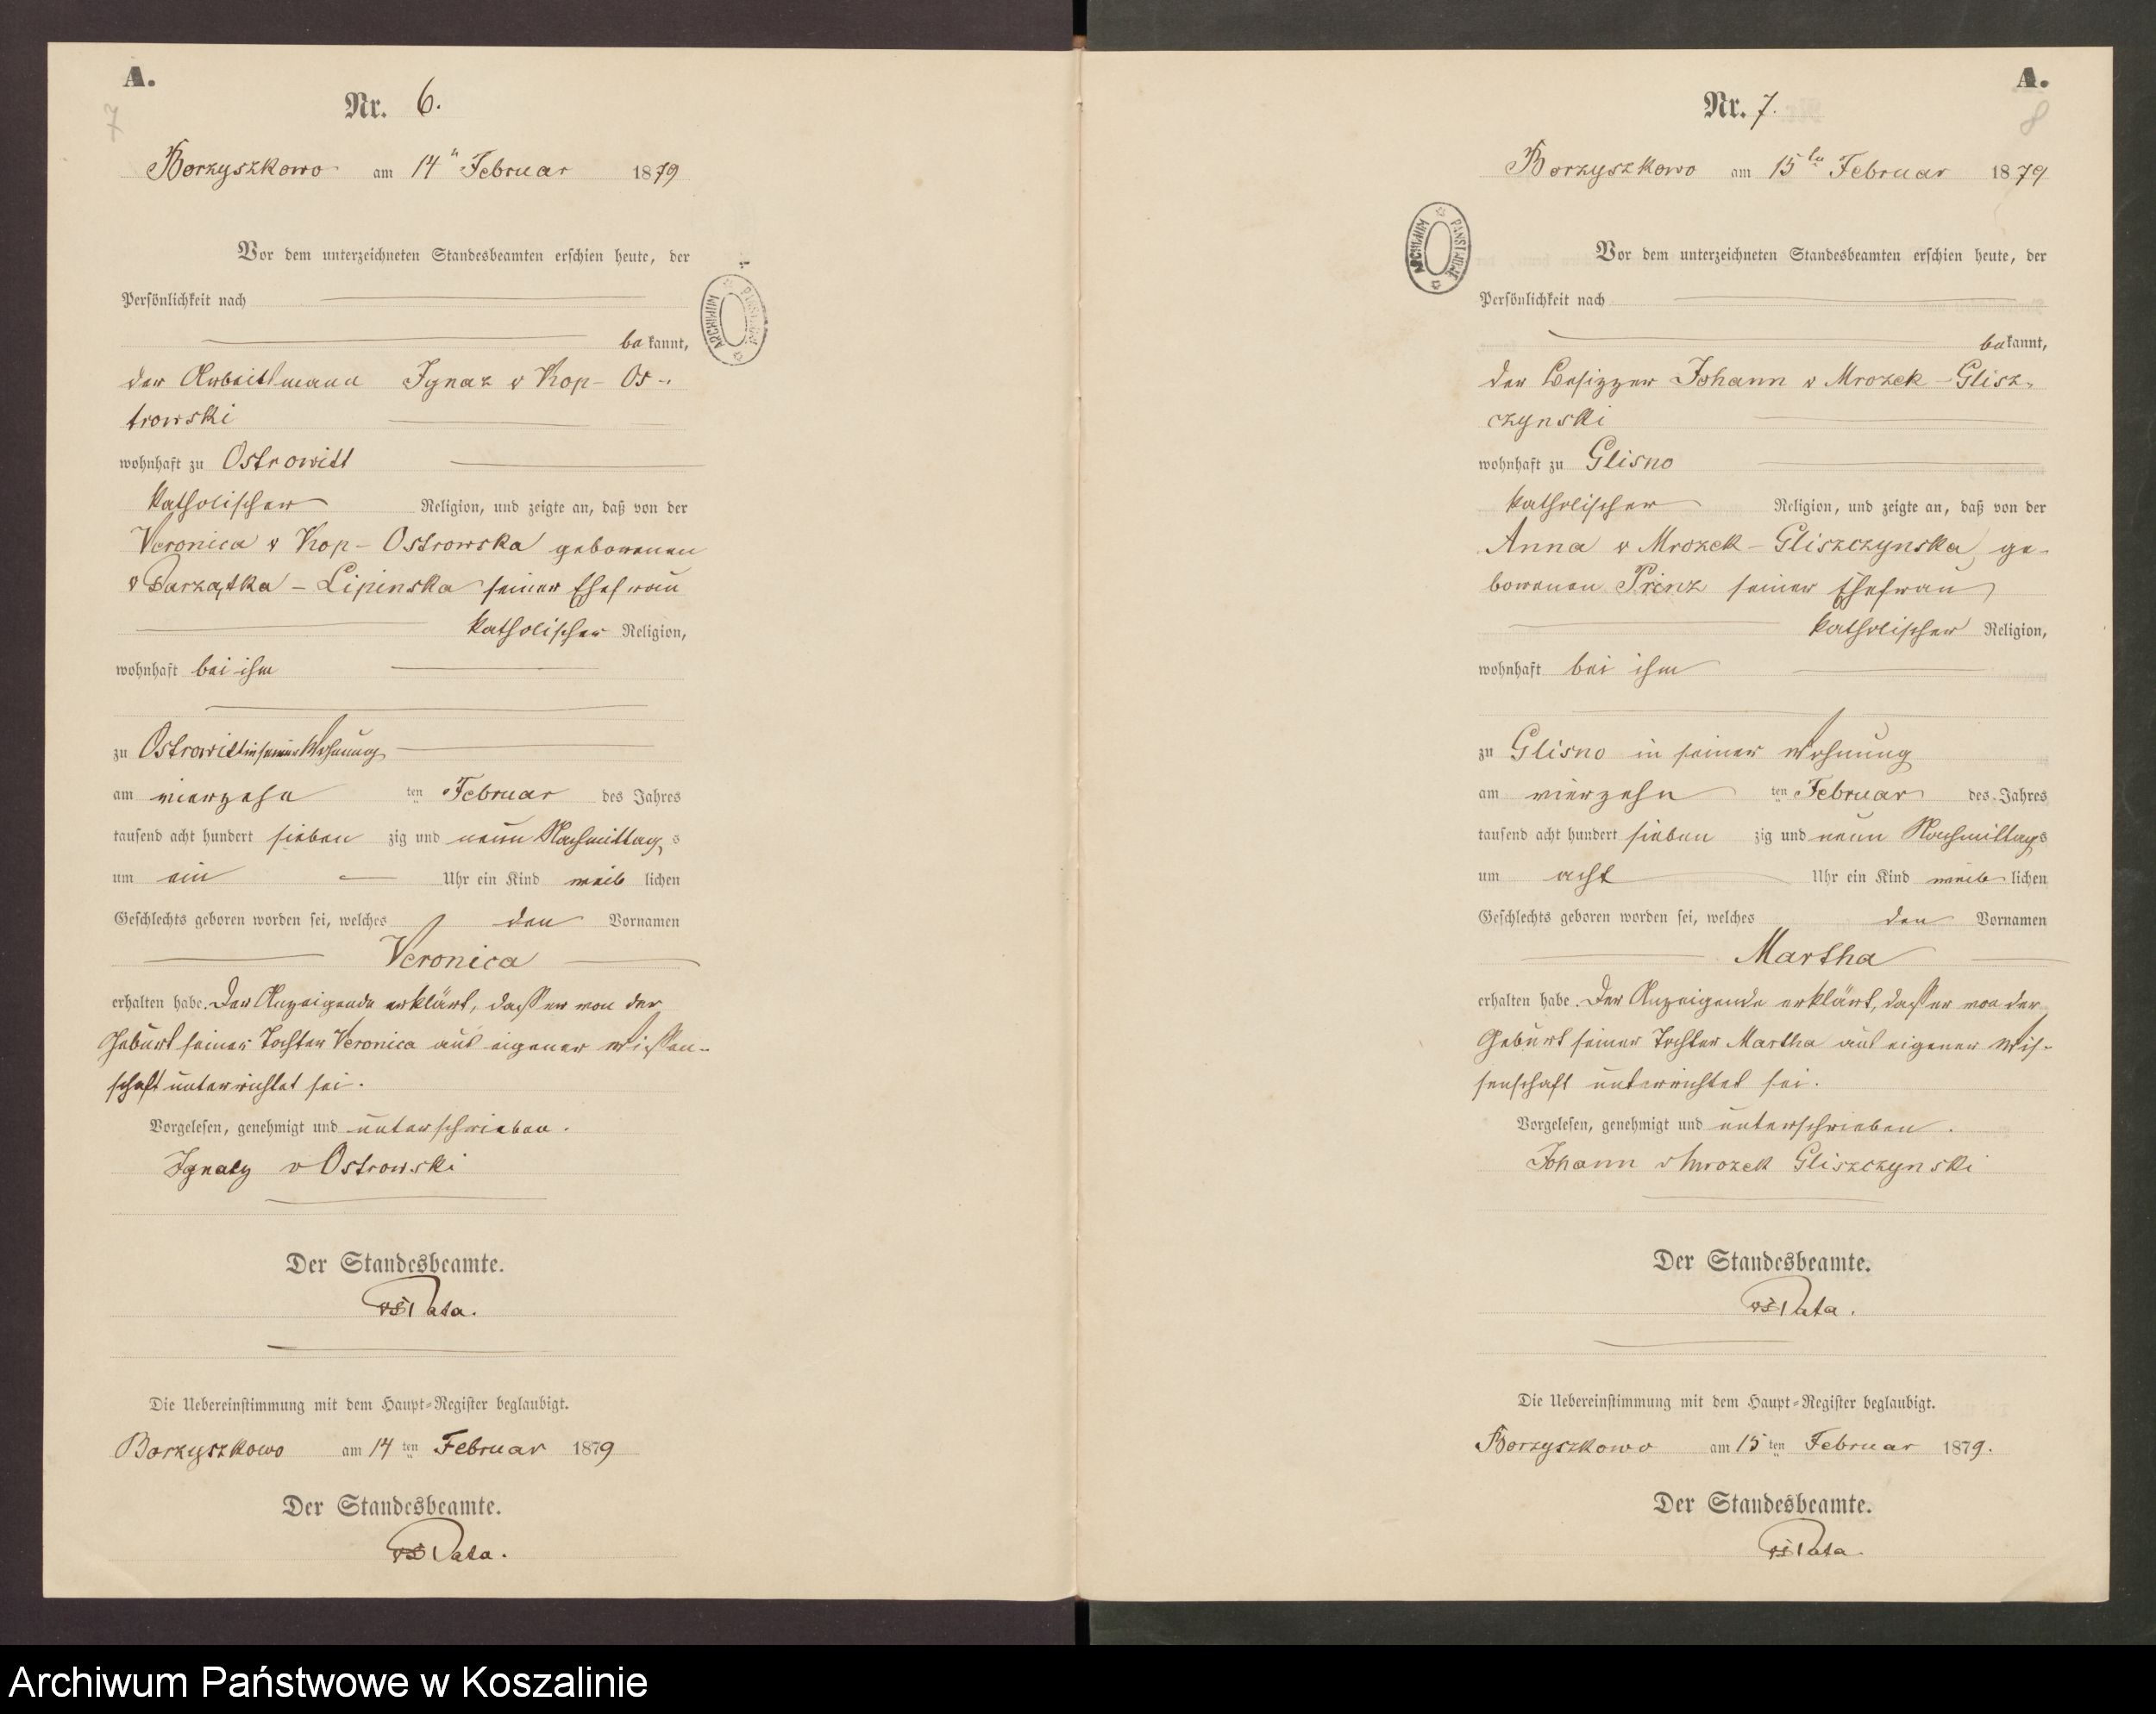 A.
7
Nr. 6.
Borzyszkowo am 14ten Februar 1879
Vor dem unterzeichneten Standesbeamten erschien heute, der
Persönlichkeit nach
be kannt,
der Arbeitsmann Ignaz v Kop- Os-
trowski
wohnhaft zu Ostrowitt
katholischer Religion, und zeigte an, daß von der
Veronica v Kop- Ostrowska geborenen
v Parzątka - Lipinska seiner Ehefrau
katholischer Religion,
wohnhaft bei ihm
zu Ostrowitt in seiner Wohnung
am vierzehn ten Februar des Jahres
tausend acht hundert sieben zig und neun Nachmittag s
um ein Uhr ein Kind weib lichen
Geschlechts geboren worden sei, welches den Vornamen
Veronica
erhalten habe. Der Anzeigende erklärt, dasser von der
Geburt seiner Tochter Veronica aus eigener Wissen-
schaft unterrichtet sei.
Vorgelesen, genehmigt und unterschrieben.
Ignatz v Ostrowski
Der Standesbeamte.
Pata.
Die Uebereinstimmung mit dem Haupt-Register beglaubigt.
Borzyszkowo am 14 ten Februar 1879
Der Standesbeamte.
Pata.
ARCHIWUM PAŃSTWOWE
A.
8
Nr. 7.
Borzyszkowo am 15ten Februar 1879
Vor dem unterzeichneten Standesbeamten erschien heute, der
Persönlichkeit nach
be kannt,
der Besitzer Johann v Mrozek - Glisz-
czynski
wohnhaft zu Glisno
katholischer Religion, und zeigte an, daß von der
Anna v Mrozek - Gliszczynska, ge-
borenen Prinz seiner Ehefrau
katholischer Religion,
wohnhaft bei ihm
zu Glisno in seiner Wohnung
am vierzehn ten Februar des Jahres
tausend acht hundert sieben zig und neun Nachmittags
um acht Uhr ein Kind weib lichen
Geschlechts geboren worden sei, welches den Vornamen
Martha
erhalten habe. Der Anzeigende erklärt, dasser von der
Geburt seiner Tochter Martha aus eigener Wis-
senschaft unterrichtet sei.
Vorgelesen, genehmigt und unterschrieben.
Johann v Mrozek Gliszczynski
Der Standesbeamte.
Pata.
Die Uebereinstimmung mit dem Haupt-Register beglaubigt.
Borzyszkowo am 15 ten Februar 1879.
Der Standesbeamte.
Pata.
ARCHIWUM PAŃSTWOWE
Archiwum Państwowe w Koszalinie